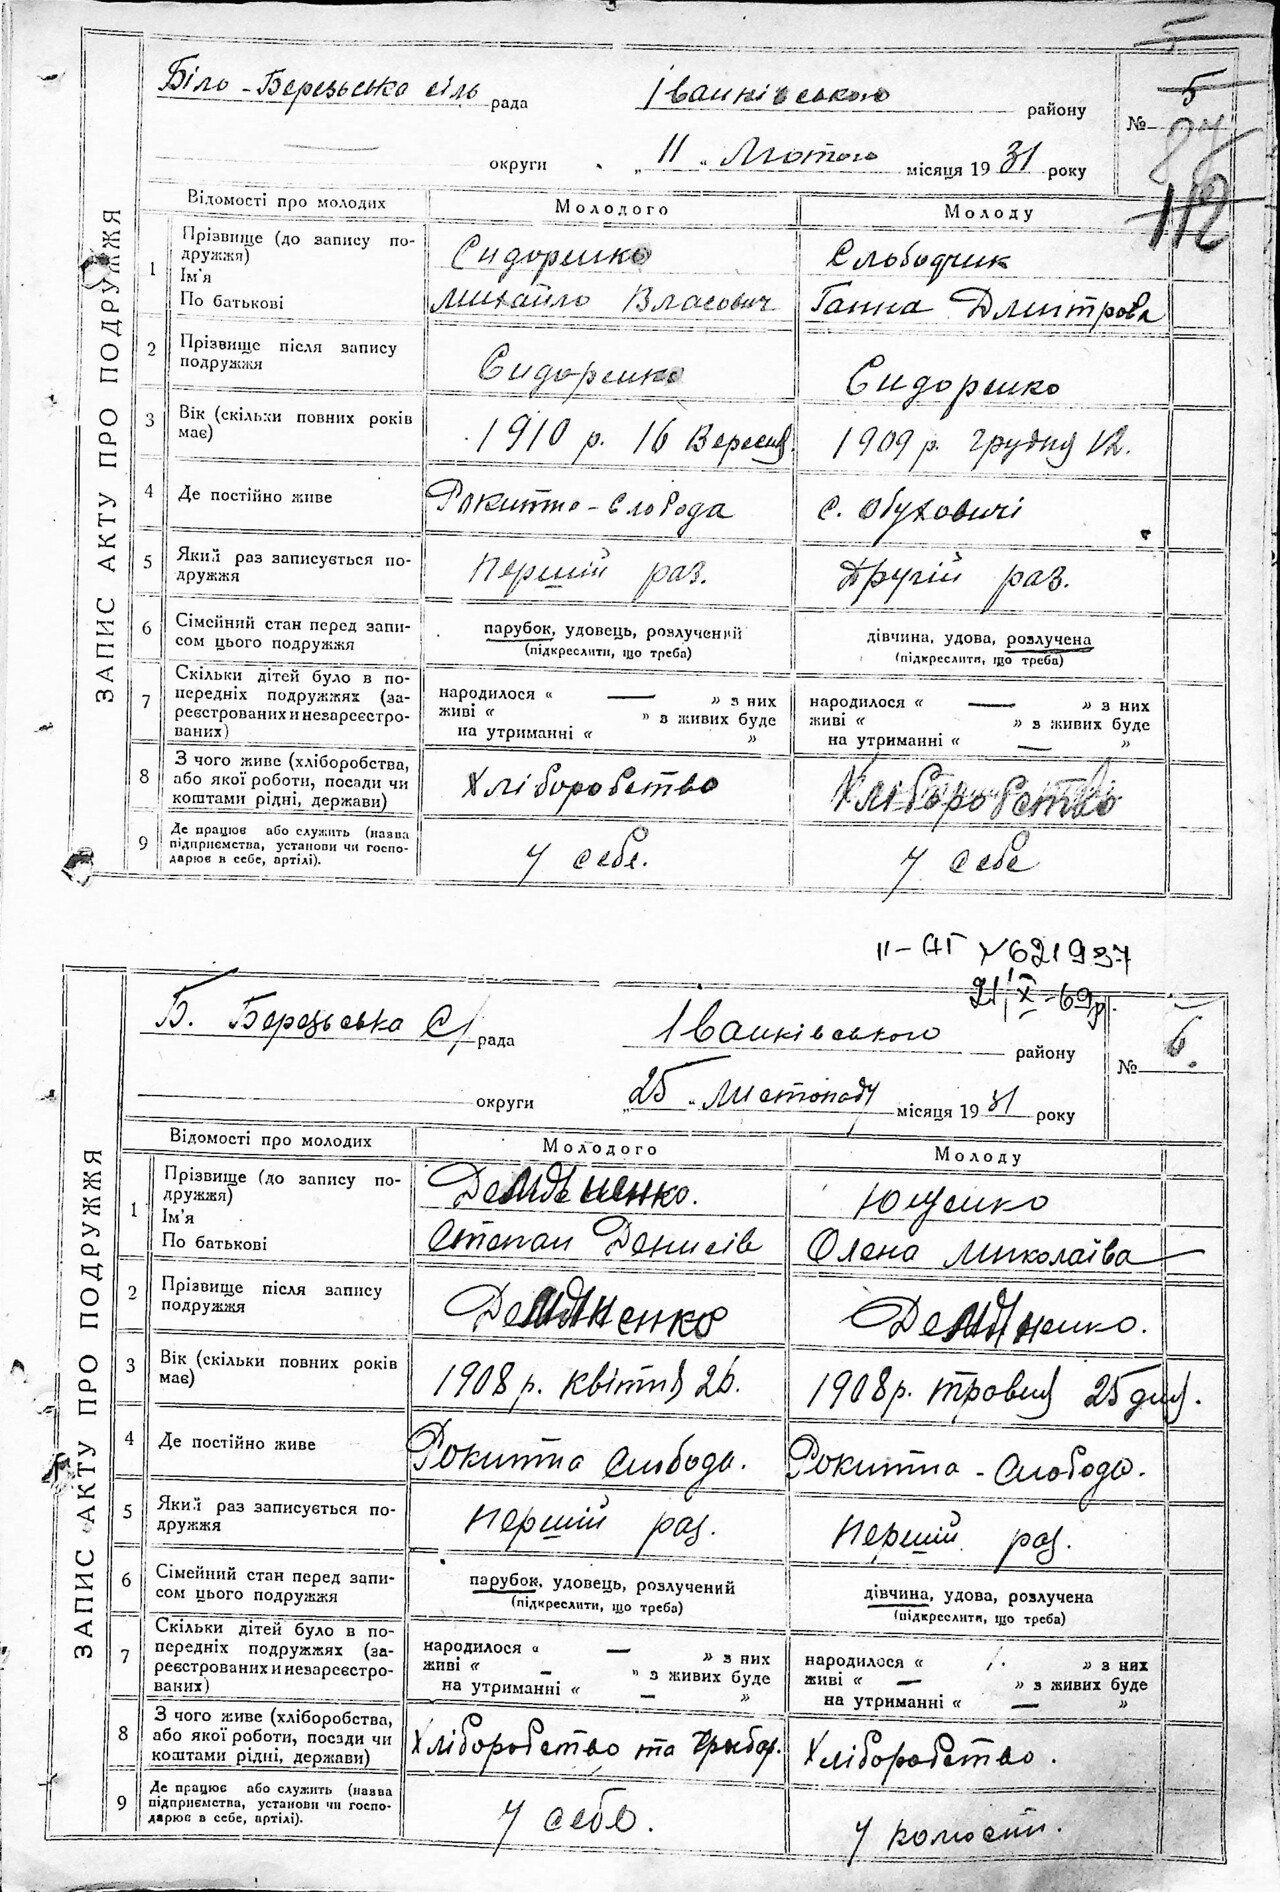 5
Біло-Березьська сіль рада Іванківського району
№ 5
112
округи „ 11 „ Лютого місяця 19 31 року
ЗАПИС АКТУ ПРО ПОДРУЖЖЯ
Відомості про молодих Молодого Молоду
1 Прізвище (до запису по- Сидоренко Слободчик
дружжя)
Ім'я
По батькові Михайло Власович Ганна Дмитрова
2 Прізвище після запису Сидоренко Сидоренко
подружжя
3 Вік (скільки повних років 1910 р. 16 Вересня 1909 р. грудня 12.
має)
4 Де постійно живе Рокитна-Слобода с. Обуховичі
5 Який раз записується по- перший раз. другій раз.
дружжя
6 Сімейний стан перед запи- парубок, удовець, розлучений дівчина, удова, розлучена
сом цього подружжя (підкреслити, що треба) (підкреслити, що треба)
7 Скільки дітей було в по- народилося « — » з них народилося « — » з них
передніх подружжях (за- живі « » в живих буде живі « » з живих буде
реєстрованих и незареєстро- на утриманні « » на утриманні « — »
ваних)
8 З чого живе (хліборобства, Хліборобство Хліборобство
або якої роботи, посади чи
коштами рідні, держави)
9 Де працює або служить (назва у себе. у себе
підприємства, установи чи госпо-
дарює в себе, артілі).
II-АГ №621937
21/X-69р.
Б. Березьська С/ рада Іванківського району
№ 6.
округи „ 25 „ Листопаду місяця 19 31 року
ЗАПИС АКТУ ПРО ПОДРУЖЖЯ
Відомості про молодих Молодого Молоду
1 Прізвище (до запису по- Ющенко
дружжя)
Ім'я
По батькові Степан Денисів Олена Миколаїва
2 Прізвище після запису
подружжя
3 Вік (скільки повних років 1908 р. квітня 26. 1908 р. травня 25 дня.
має)
4 Де постійно живе Рокитна Слобода. Рокитна-Слобода.
5 Який раз записується по- перший раз. перший раз.
дружжя
6 Сімейний стан перед запи- парубок, удовець, розлучений дівчина, удова, розлучена
сом цього подружжя (підкреслити, що треба) (підкреслити, що треба)
7 Скільки дітей було в по- народилося « — » з них народилося « » з них
передніх подружжях (за- живі « — » з живих буде живі « — » з живих буде
реєстрованих и незареєстро- на утриманні « — » на утриманні « — »
ваних)
8 З чого живе (хліборобства, Хліборобство та Хліборобство.
або якої роботи, посади чи
коштами рідні, держави)
9 Де працює або служить (назва у себе. у
підприємства, установи чи госпо-
дарює в себе, артілі).